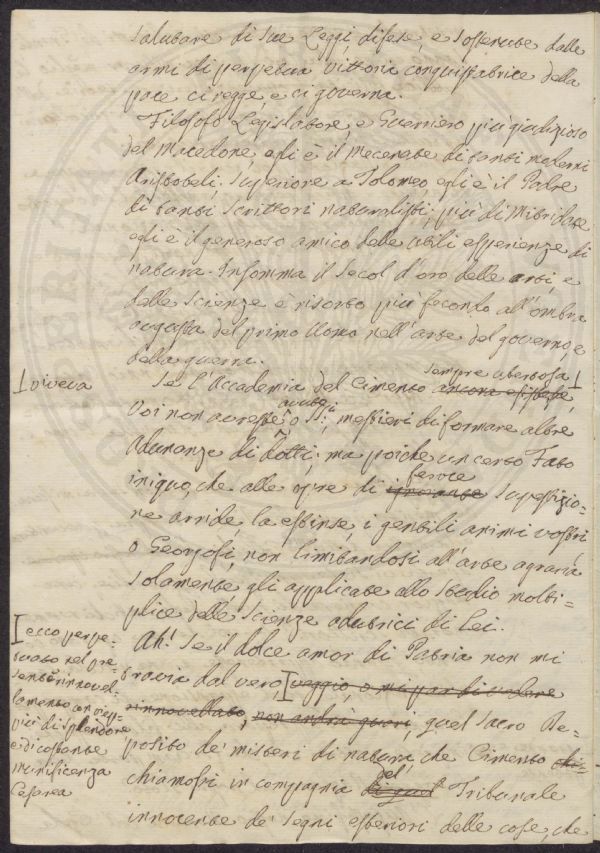 salutare di sue Leggi, difese, e sostenute dalle
armi di perpetua vittoria conquistatrice della
pace ci regge, e ci governa.
Filosofo Legislatore, e Guerriero più giudizioso
del Macedone, egli è il Mecenate di tanti moderni
Aristoteli; superiore a Tolomeo, egli è il Padre
di tanti scrittori naturalisti; più di Mitridate
egli è il generoso amico delle utili esperienze di
natura. Insomma il secol d'oro delle arti, e
delle scienze è risorto più fecondo all'ombra
augusta del primo Uomo nell'arte del governo, e
della guerra.
sempre ubertosa
viveva
Se l'Accademia del Cimento ancora esistesse,
avuto
voi non avreste o SSi., mestieri di formare altre
adunanze di Dotti; ma poiche un certo Fato
feroce
iniquo, che alle opre di ignorante superstizio=
ne arride, la estinse, i gentili animi vostri,
o Georgofi, non limitandosi all'arte agraria
solamente gli applicate allo studio molti=
plice delle Scienze adutrici di Lei.
Ah! Se il dolce amor di Patria non mi
travia dal vero, veggio, o mi par di vedere
rinnovellato, non andrà guari, quel sacro De=
posito de' misteri di natura, che Cimento chi=
ecco perpe=
tuato nel pre
sente rinnovel=
lamento con viep
più di splendore
e di costante
munificenza
Cesarea
del
chiamossi in compagnia di quel Tribunale
innocente de' segni esteriori delle cose, che